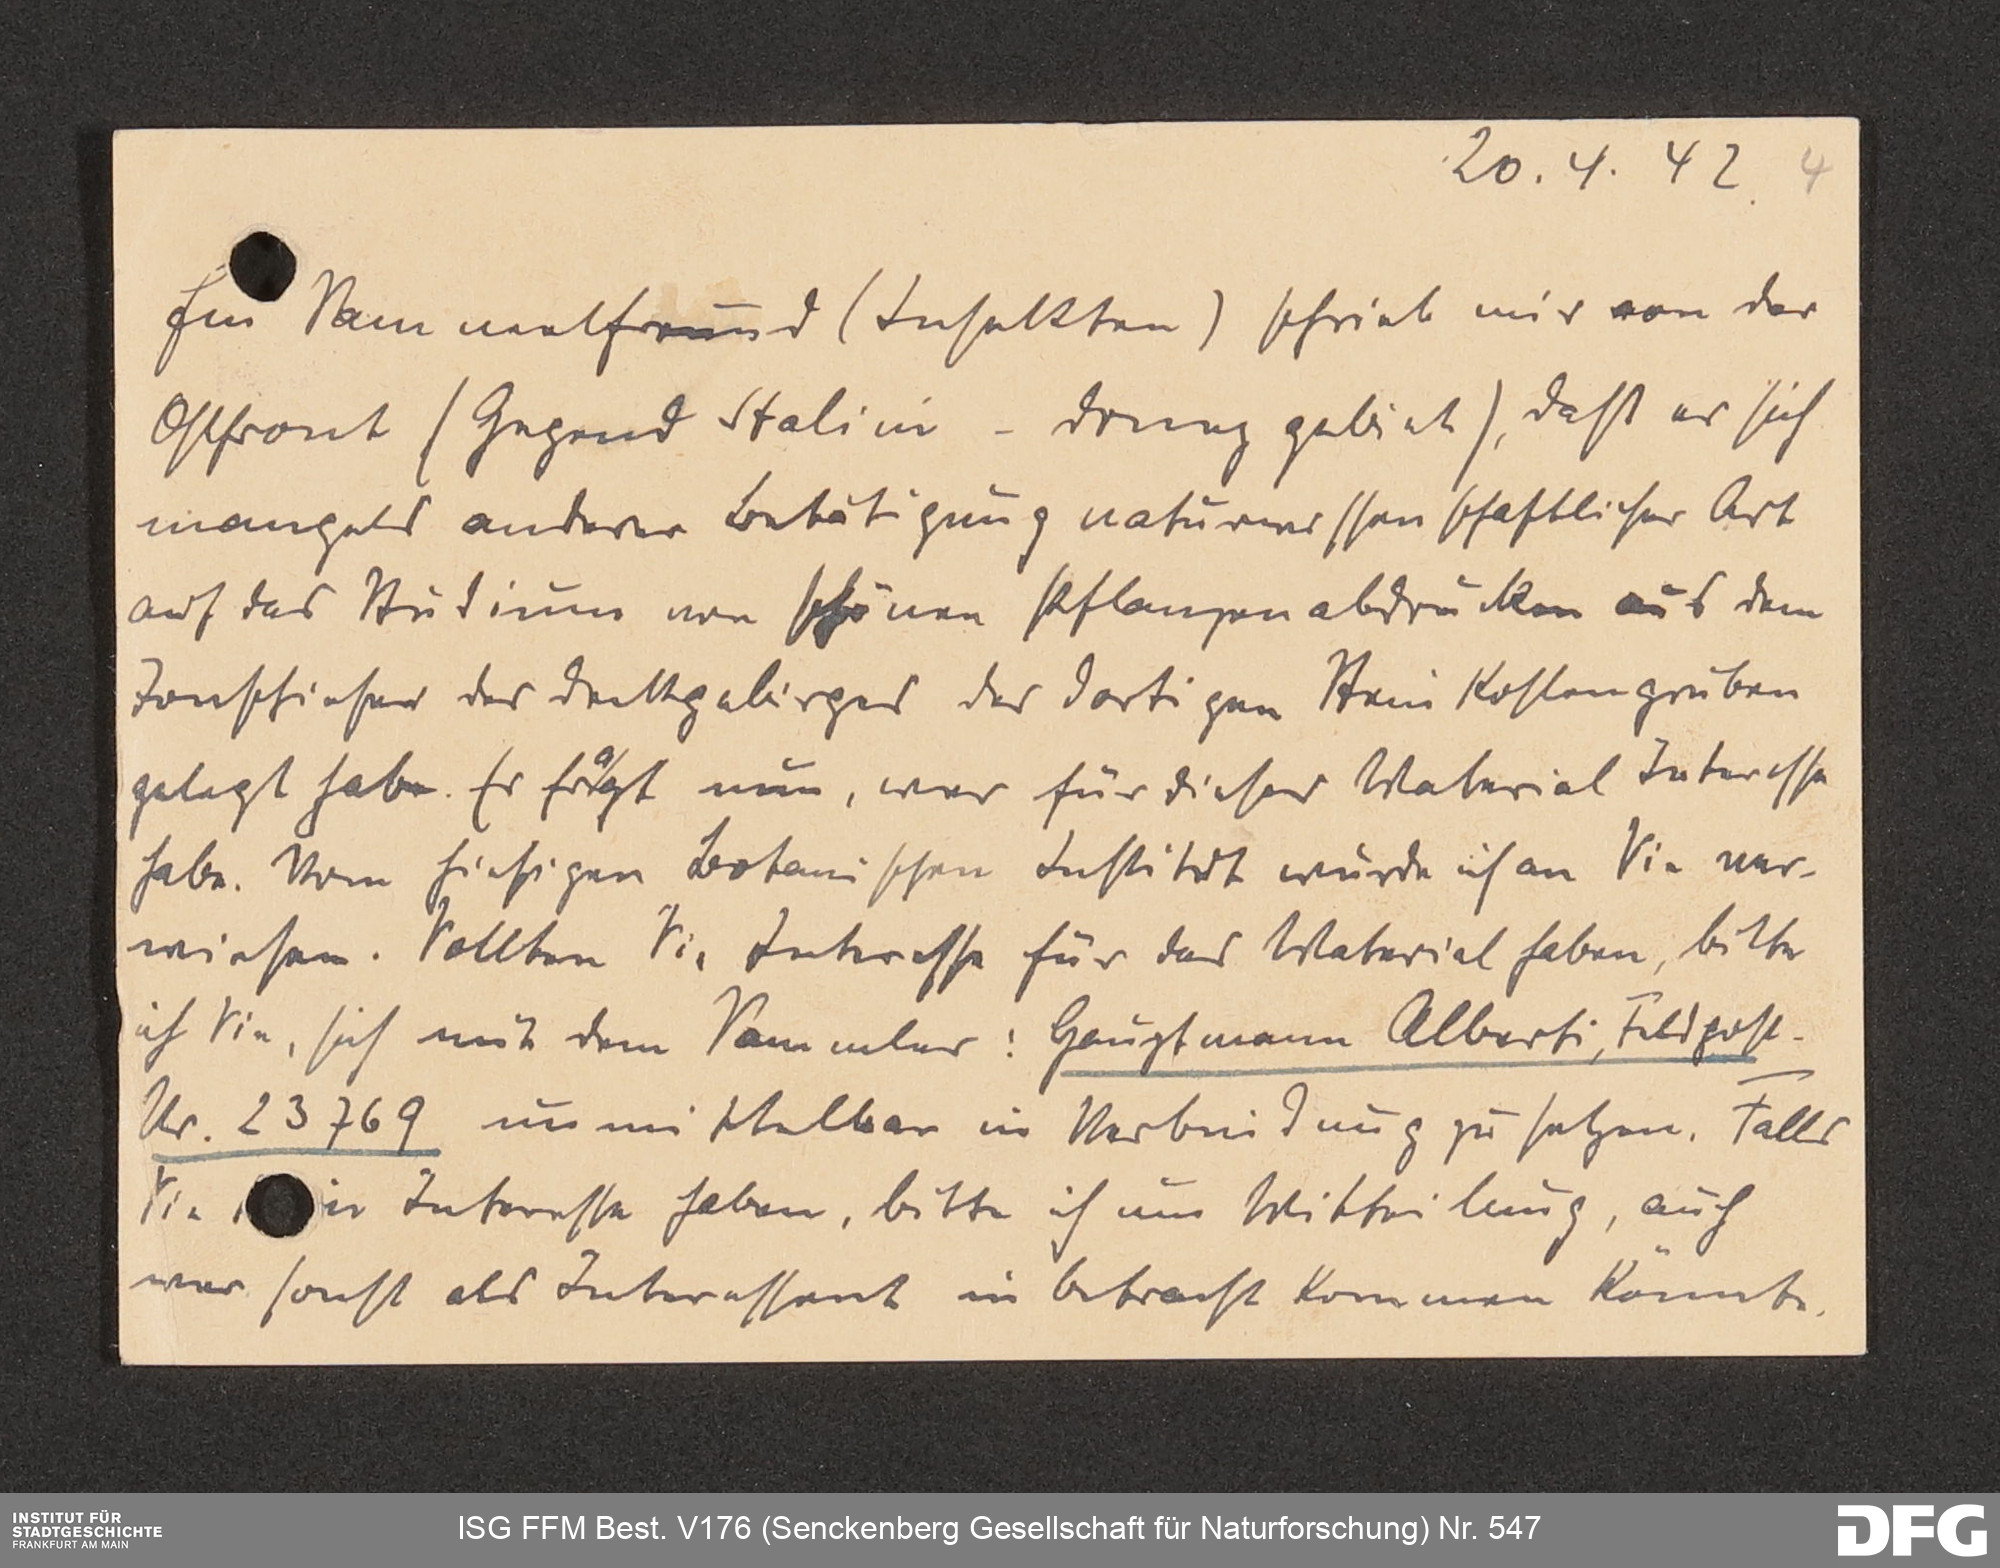 20.4.42 4
Ein Sammelfreund (Insekten) schrieb mir von der
Ostfront (Gegend Stalin - donezgebiet), daß er sich
mangels anderer Betätigung naturwissenschaftlicher Art
auf das Studium von schönen Pflanzenabdrücken aus dem
Tonschiefer des deckgebirges der dortigen Steinkohlengruben
gelegt habe. Er frägt nun, wer für dieses Material Interesse
habe. Vom hiesigen Botanischen Institut wurde ich an Sie ver-
wiesen. Sollten Sie Interesse für das Material haben, bitte
ich Sie, sich mit dem Sammler: Hauptmann Alberti, Feldpost-
Nr. 23769 unmittelbar in Verbindung zu setzen. Falls
Sie kein Interesse haben, bitte ich um Mitteilung, auch
wer sonst als Interessent in betracht kommen könnte.
INSTITUT FÜR
STADTGESCHICHTE
FRANKFURT AM MAIN
ISG FFM Best. V176 (Senckenberg Gesellschaft für Naturforschung) Nr. 547
DFG